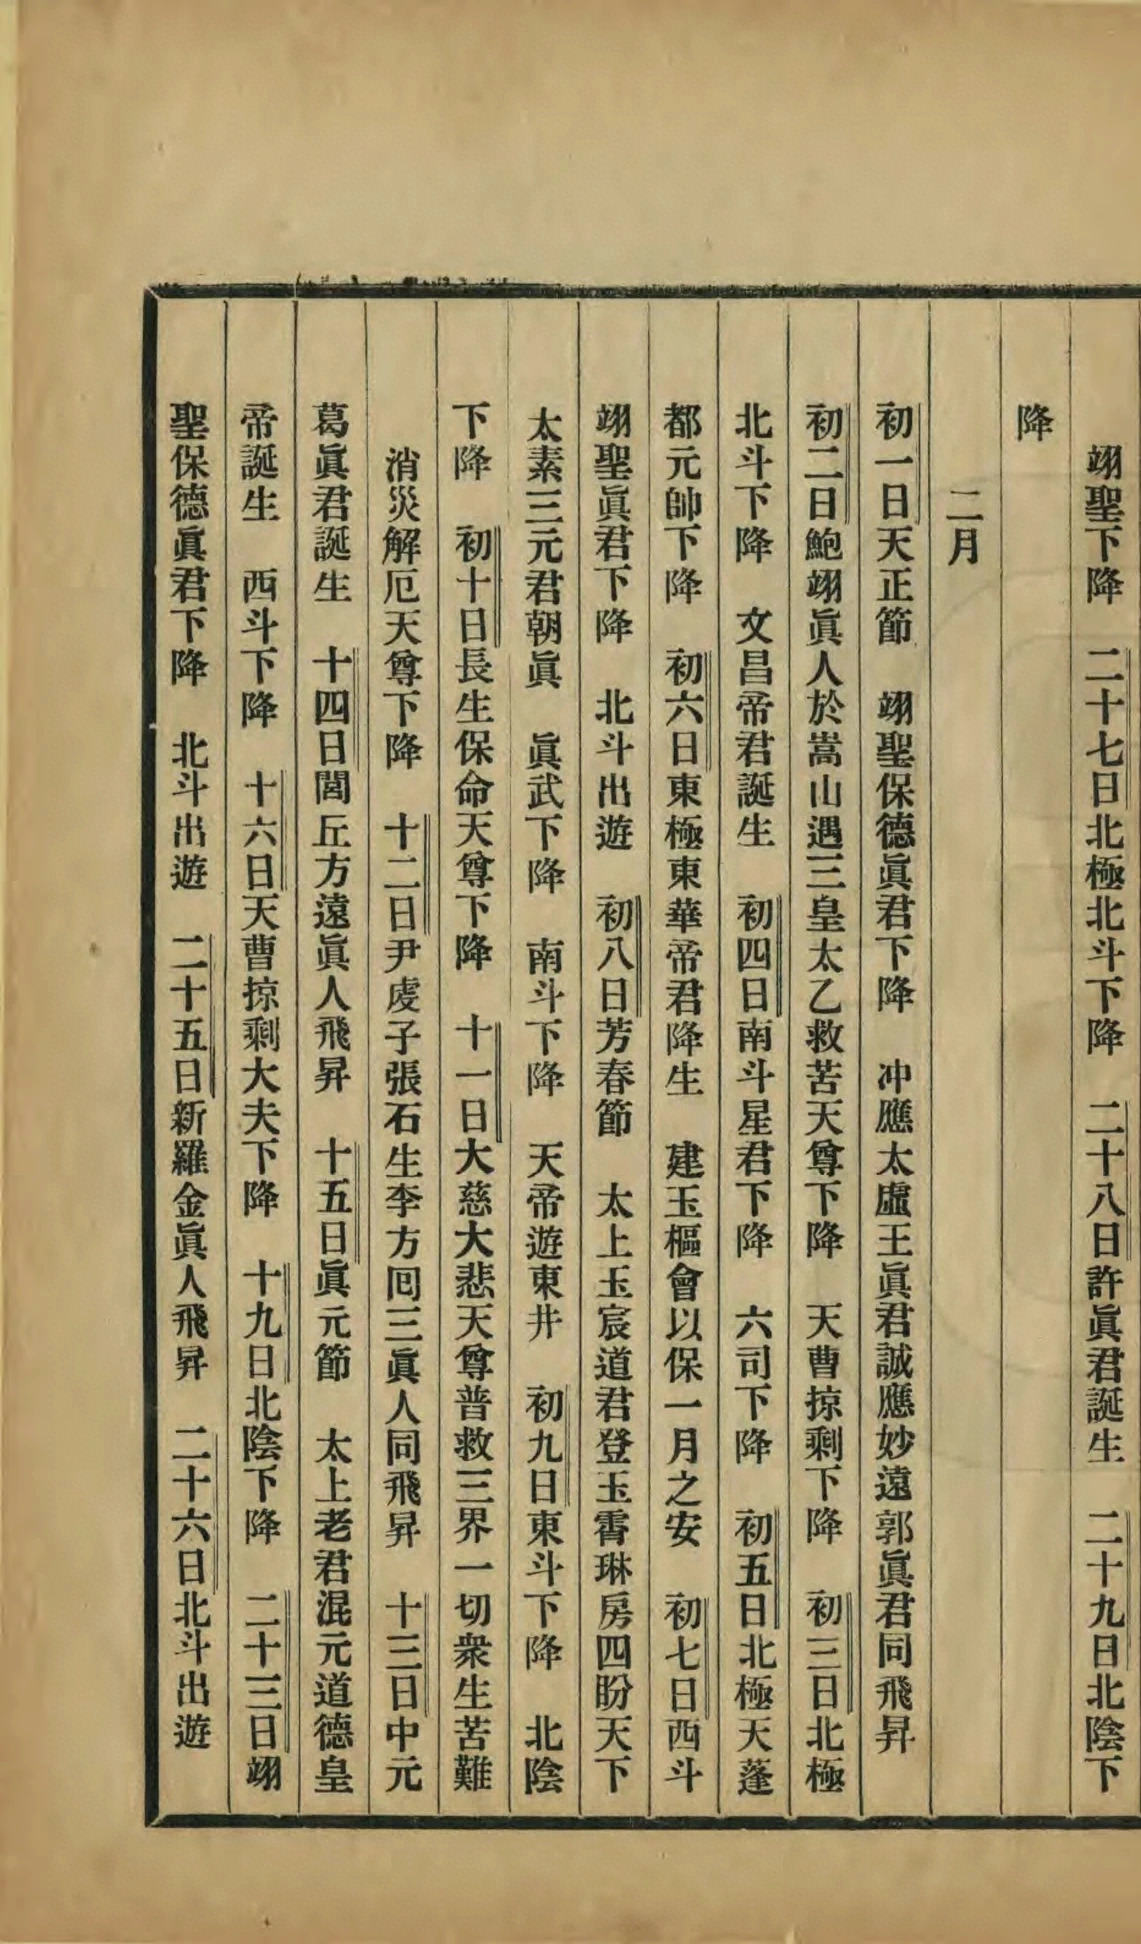 翊聖下降　二十七日北極北斗下降　二十八日許眞君誕生　二十九日北陰下
降
二月
初一日天正節　翊聖保德眞君下降　冲應太虛王眞君誠應妙遠郭眞君同飛昇
初二日鮑翊眞人於嵩山遇三皇太乙救苦天尊下降　天曹掠剩下降　初三日北極
北斗下降　文昌帝君誕生　初四日南斗星君下降　六司下降　初五日北極天蓬
都元帥下降　初六日東極東華帝君降生　建玉樞會以保一月之安　初七日西斗
翊聖眞君下降　北斗出遊　初八日芳春節　太上玉宸道君登玉霄琳房四盼天下
太素三元君朝眞　眞武下降　南斗下降　天帝遊東井　初九日東斗下降　北陰
下降　初十日長生保命天尊下降　十一日大慈大悲天尊普救三界一切衆生苦難
消災解厄天尊下降　十二日尹虔子張石生李方囘三眞人同飛昇　十三日中元
葛眞君誕生　十四日閭丘方遠眞人飛昇　十五日眞元節　太上老君混元道德皇
帝誕生　西斗下降　十六日天曹掠剩大夫下降　十九日北陰下降　二十三日翊
聖保德眞君下降　北斗出遊　二十五日新羅金眞人飛昇　二十六日北斗出遊